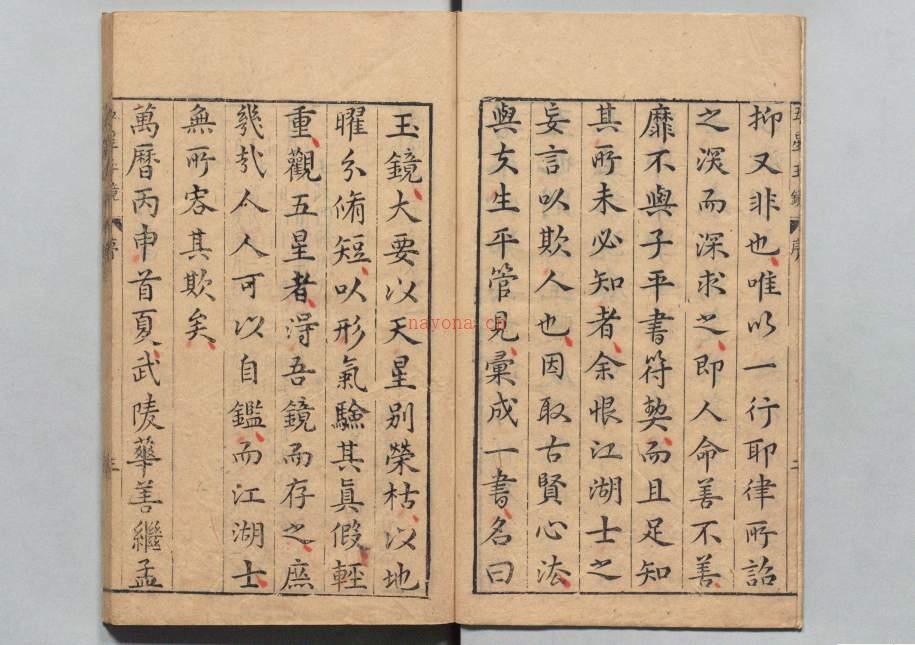 抑又非也唯以一行耶律所詣
之深而深求之即人命善不善
靡不與子平書符契而且足知
其所未必知者余恨江湖士之
妄言以欺人也因取古賢心法
與夫生平管見彙成一書名曰
玉鏡大要以天星别榮枯以地
曜分脩短以形氣驗其真假輕
重觀五星者得吾鏡而存之庶
幾哉人人可以自鑑而江湖士
無所容其欺矣
萬曆丙申首夏武陵華善繼孟
序
序
nayona.cn